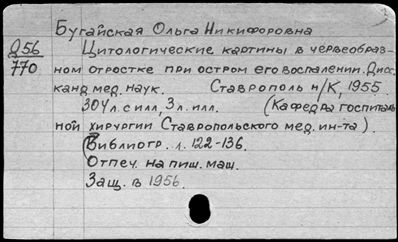 Бугайская Ольга Никифоровна
Д56
770
Цитологические картины в червеобраз-
ном отростке при остром его воспалении. Дисс.
канд. мед. наук. Ставрополь н/К, 1955.
304 л. с илл, 3 л. илл. (Кафедра госпиталь
ной хирургии Ставропольского мед. ин-та).
(Библиогр. л. 122-136.
Отпеч. на пиш. маш.
Защ. в 1956.